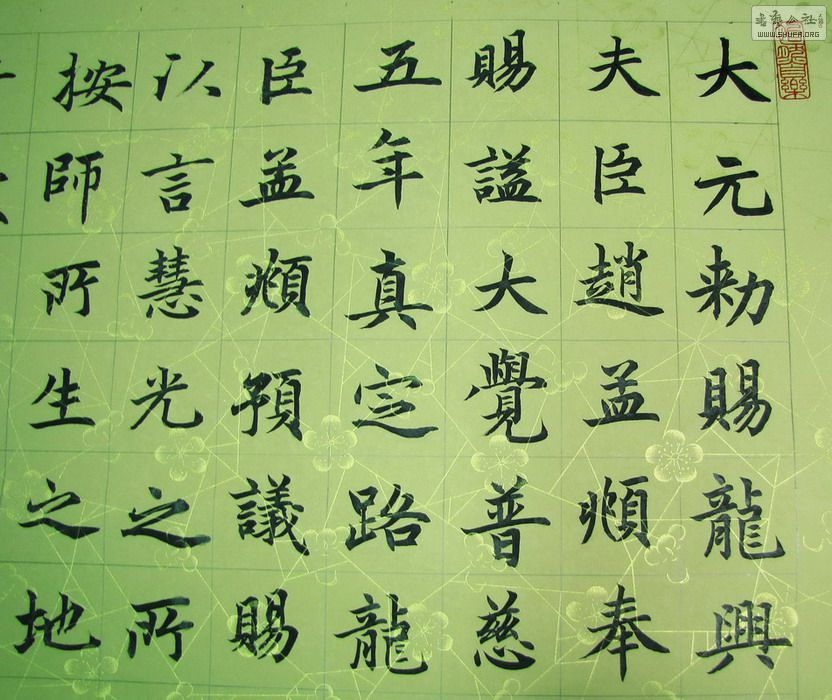 大元勑賜龍興
夫臣趙孟頫奉
賜謚大覺普慈
五年真定路龍
臣孟頫預議賜
以言慧光之所
按師所生之地
WWW.SHUFA.ORG